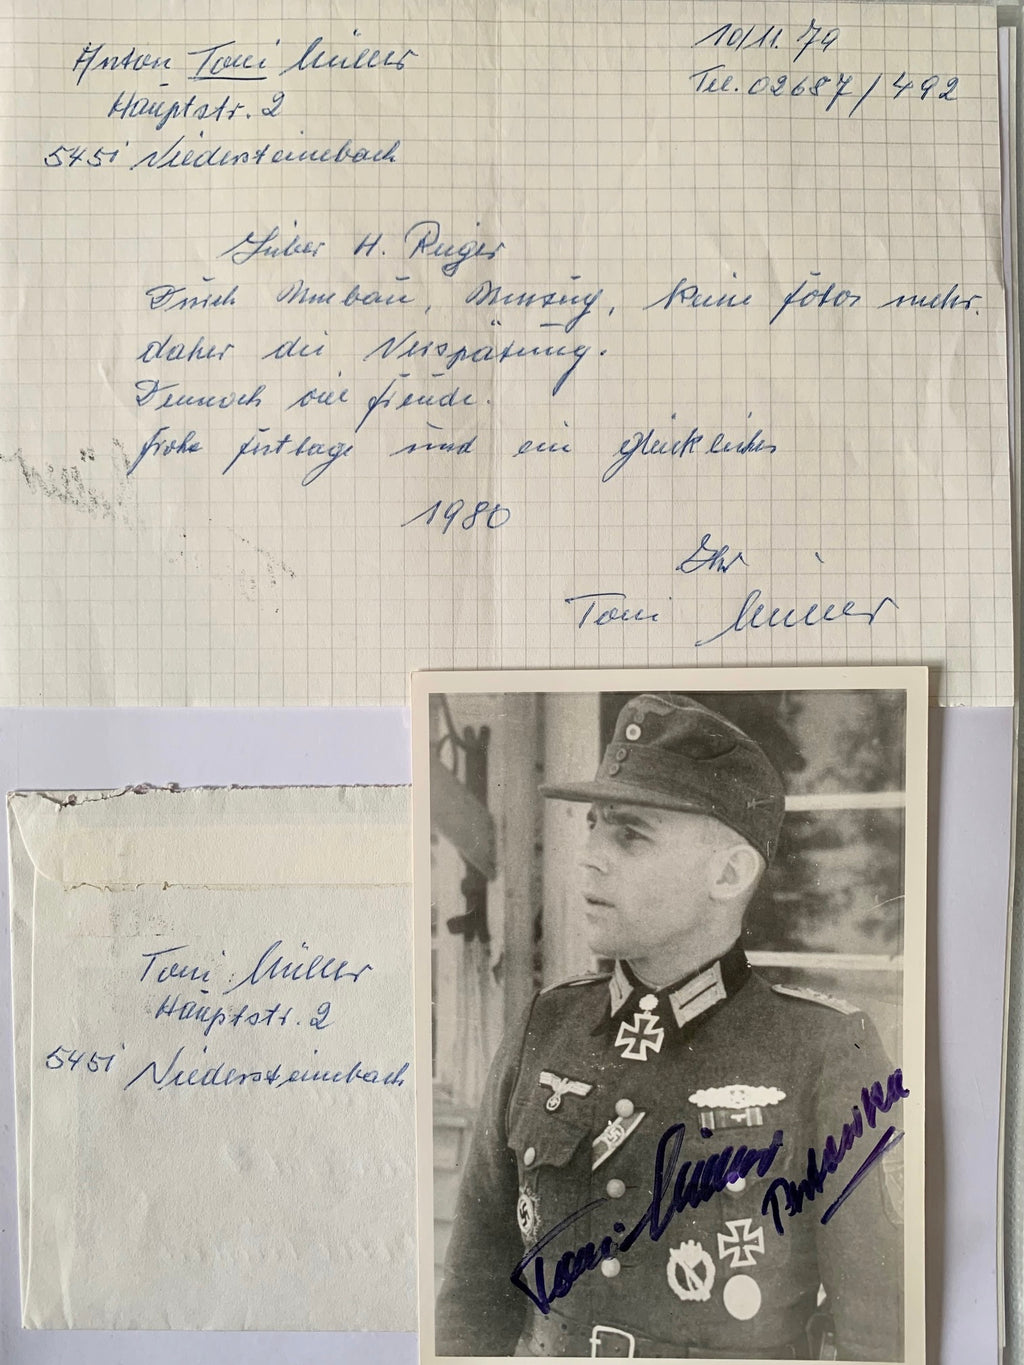 Anton Toni Müller
Hauptstr. 2
5451 Niedersteinebach
10/11. 79
Tel. 02687/492
Lieber H. Rieger
Durch Umbau, Umzug, keine Fotos mehr.
daher die Verspätung.
Dennoch viel Freude.
Frohe Festtage und ein glückliches
1980
Ihr
Toni Müller
Toni Müller
Hauptstr. 2
5451 Niedersteinebach
Toni Müller